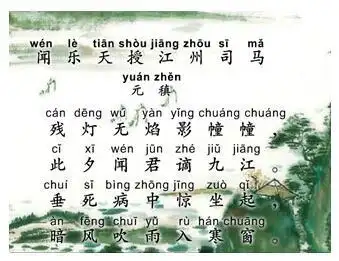 wén lè tiān shòu jiāng zhōu sī mǎ
闻乐天授江州司马
yuán zhěn
元稹
cán dēng wú yàn yǐng chuáng chuáng
残灯无焰影幢幢，
cǐ xī wén jūn zhé jiǔ jiāng
此夕闻君谪九江。
chuí sǐ bìng zhōng jīng zuò qǐ
垂死病中惊坐起，
àn fēng chuī yǔ rù hán chuāng
暗风吹雨入寒窗。